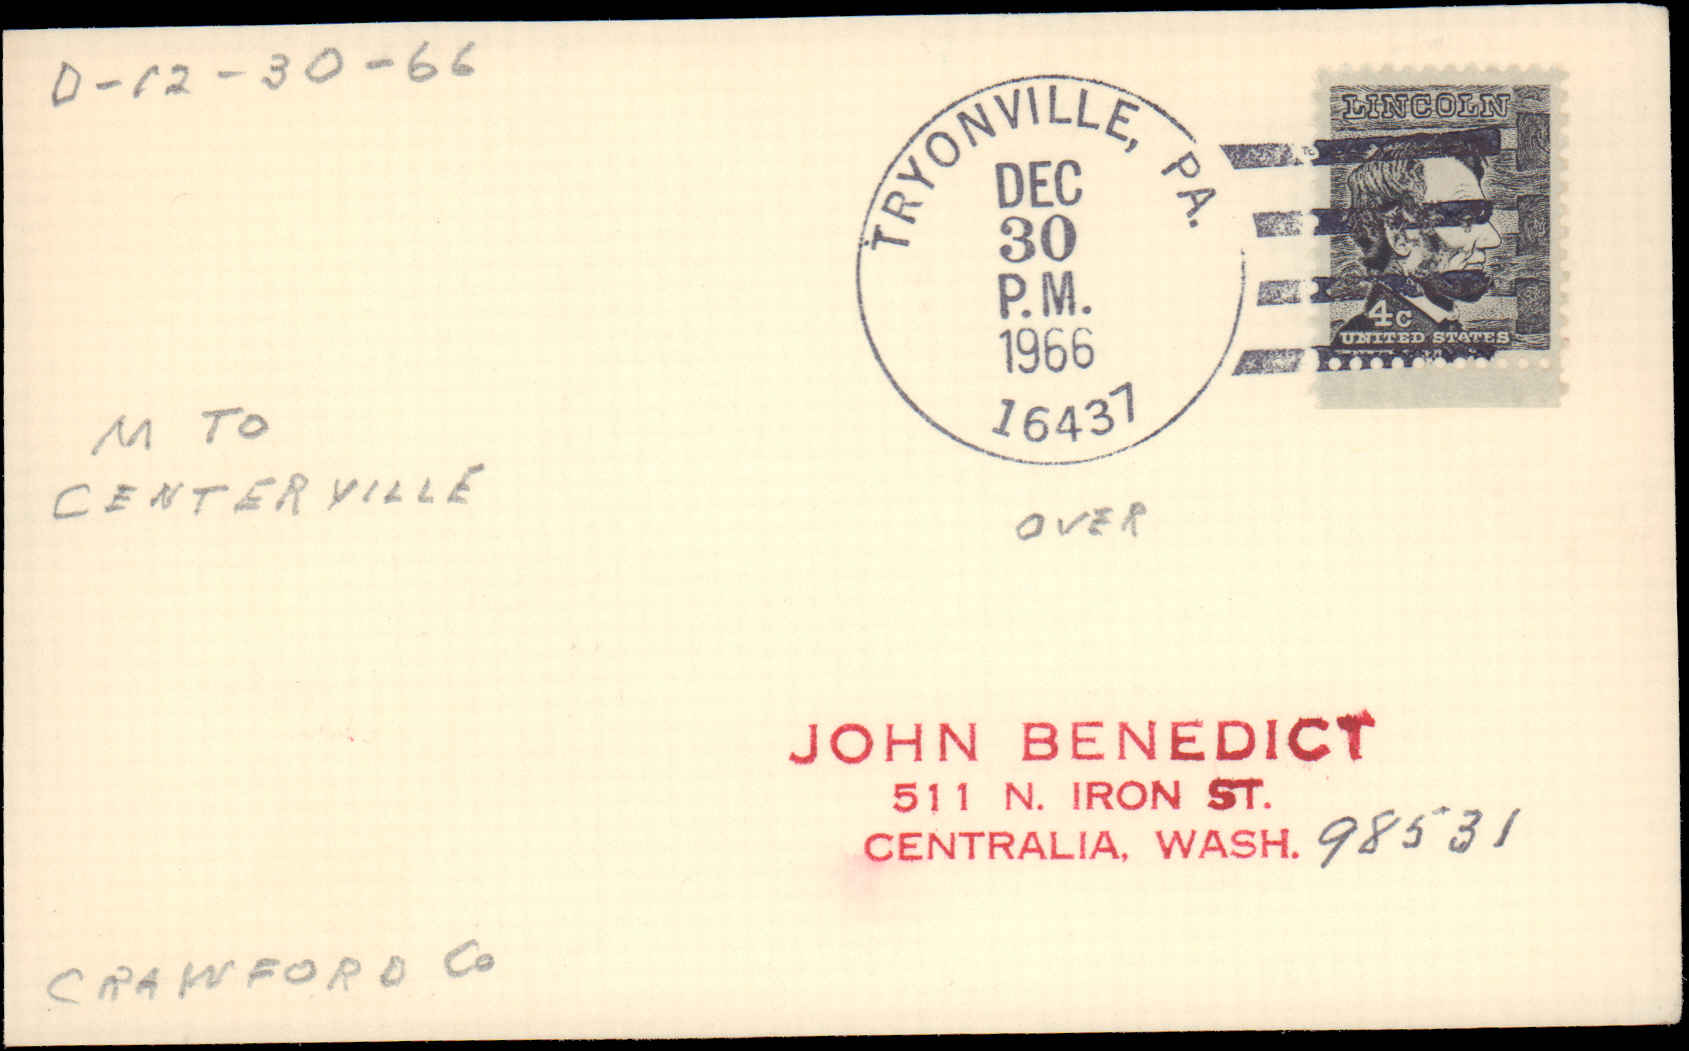 D-12-30-66
TRYONVILLE, PA.
DEC
30
P.M.
1966
16437
LINCOLN
4c
UNITED STATES
M TO
CENTERVILLE
OVER
JOHN BENEDICT
511 N. IRON ST.
CENTRALIA, WASH. 98531
CRAWFORD Co